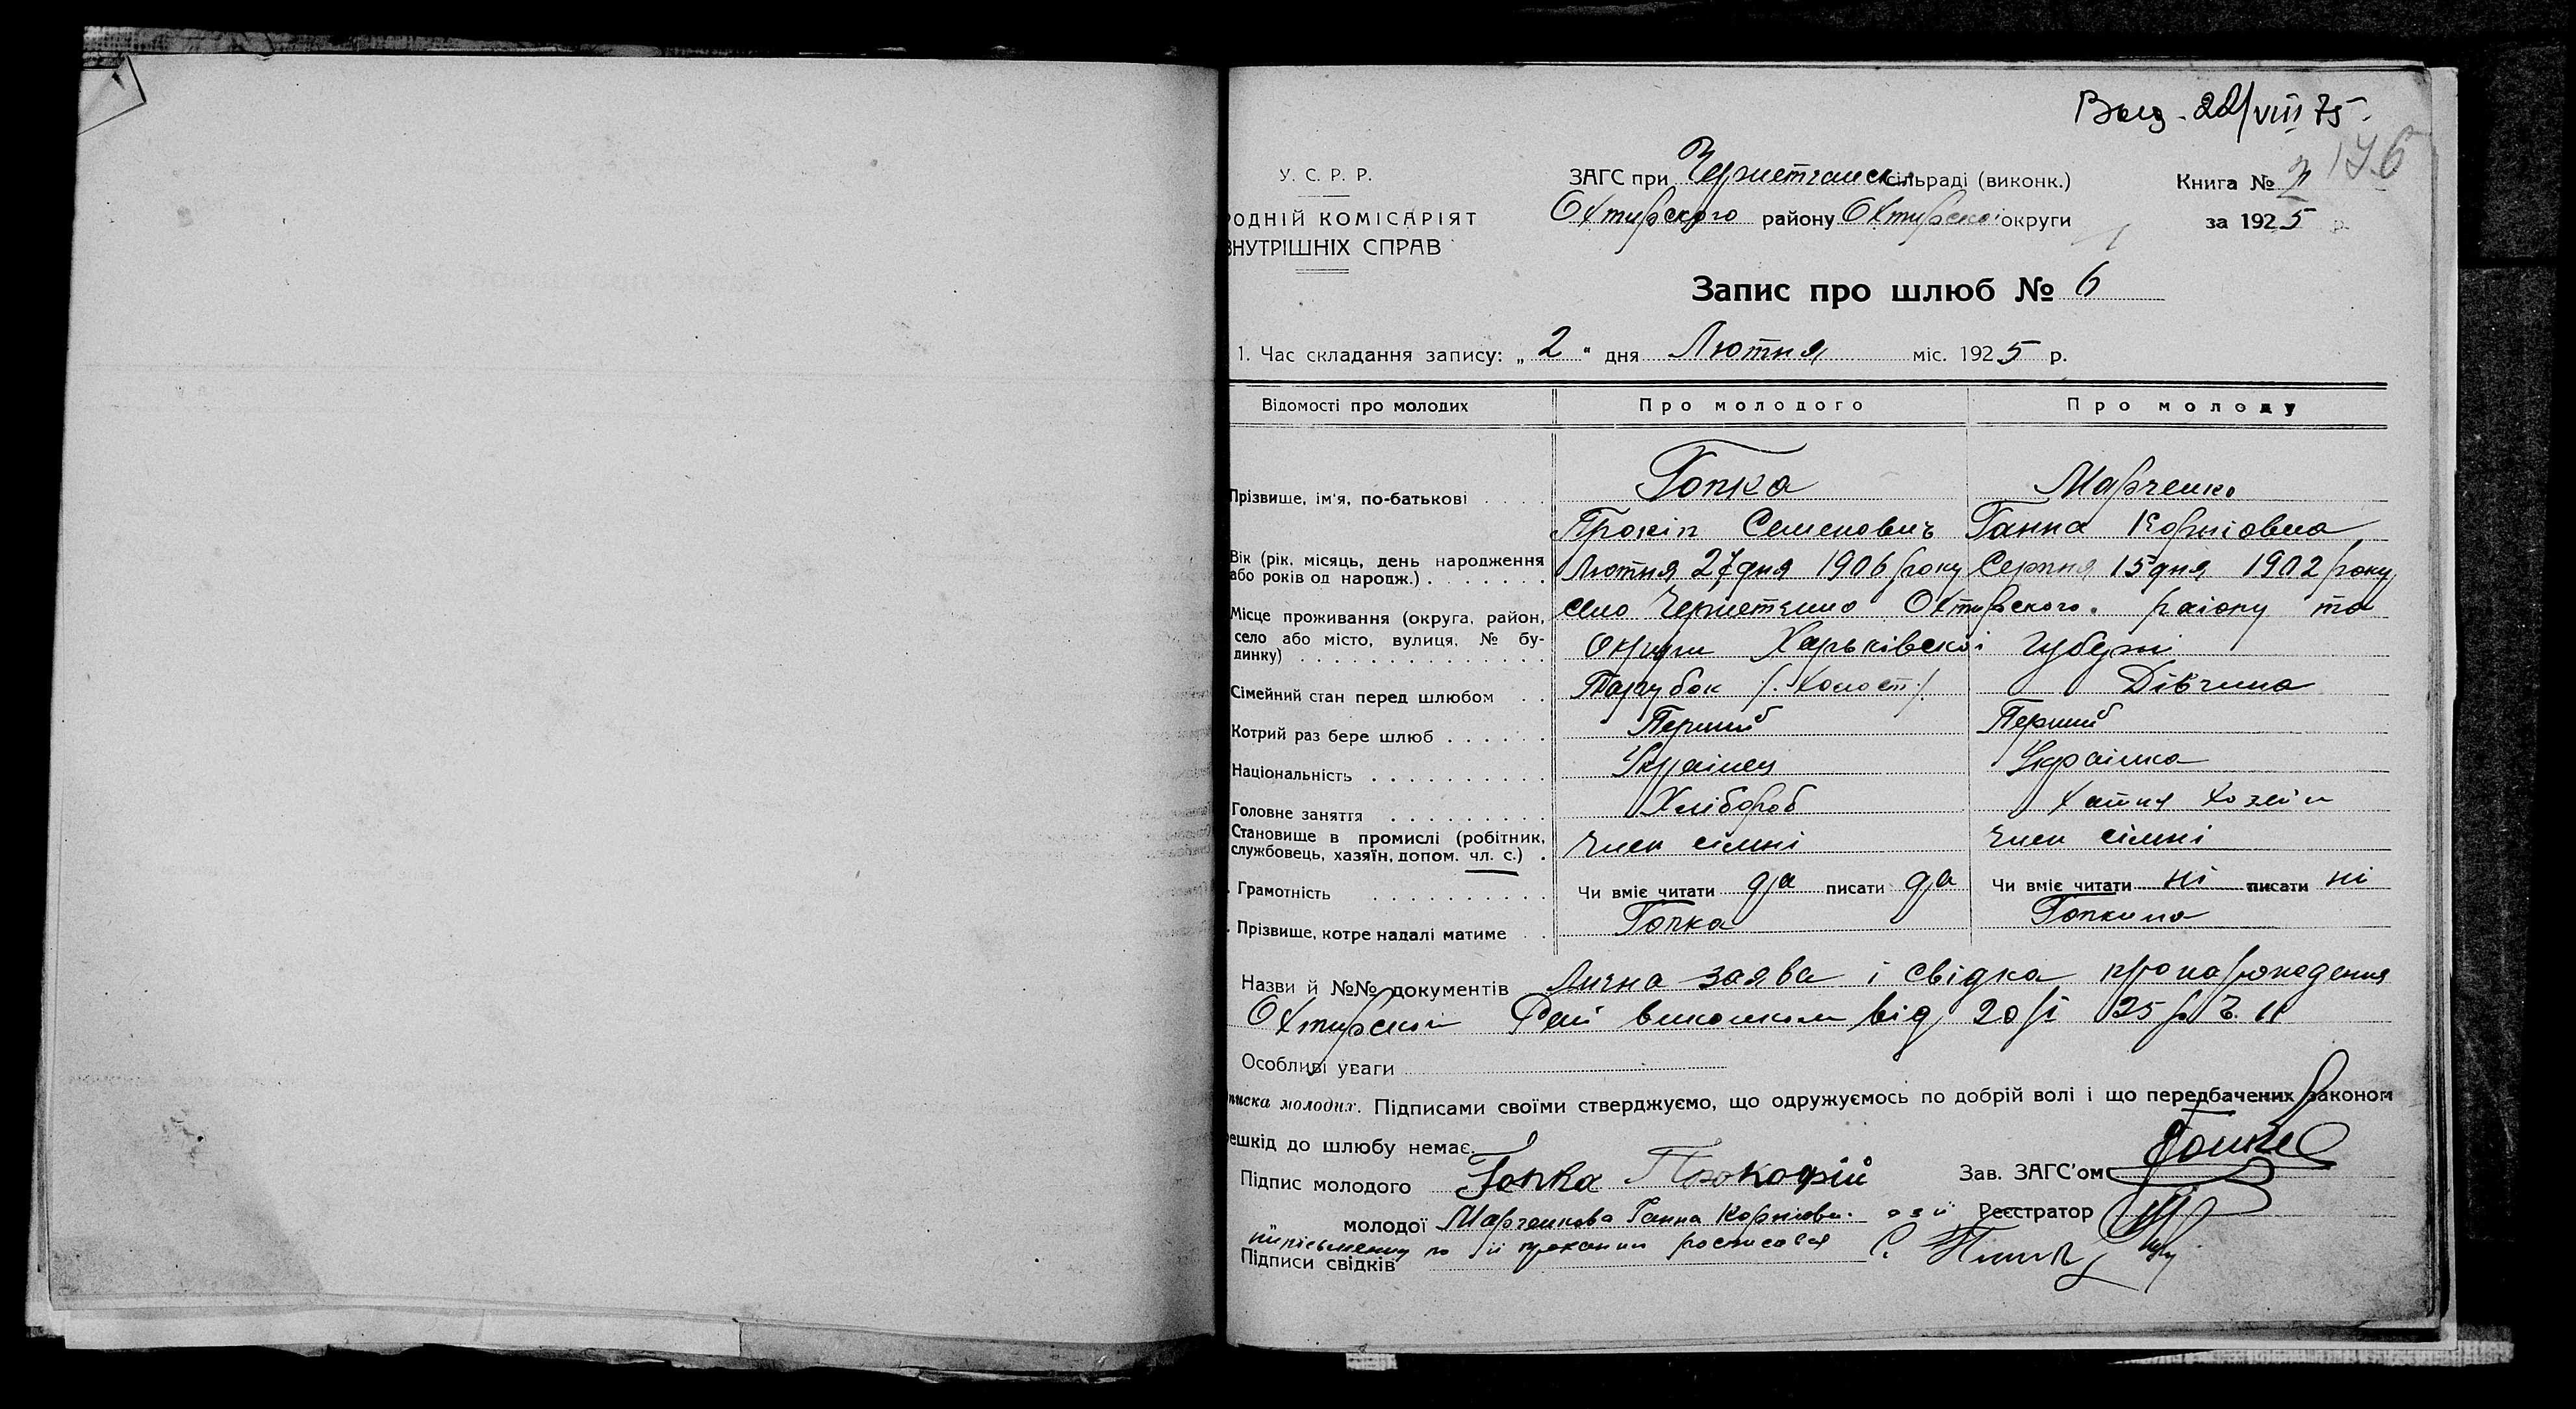 Выд. 22/VIII 75
176
У. С. Р. Р.
ЗАГС при Чернетчанск. сільраді (виконк.)
Книга № 2
ОДНІЙ КОМІСАРІЯТ
Охтирского району Охтирскоі округи
за 1925 р.
ВНУТРІШНІХ СПРАВ
Запис про шлюб № 6
1. Час складання запису: „ 2 “ дня Лютня міс. 1925 р.
Відомості про молодих
Про молодого
Про молоду
Прізвище, ім'я, по-батькові
Гопка
Марченко
Прокіп Семенович
Ганна Корніовна
Вік (рік, місяць, день народження
або років од народж.)
Лютня 27 дня 1906 року
Серпня 15 дня 1902 року
Місце проживання (округа, район,
село або місто, вулиця, № бу-
динку)
село Чернетчино Охтирского. раіону та
Округи Харьківскоі губерні
Сімейний стан перед шлюбом
Парубок /. холост /.
Дівчина
Котрий раз бере шлюб
Перший
Перший
Національність
Украінец
Украінка
Головне заняття
Хлібороб
Хатня хозяйн
Становище в промислі (робітник,
службовець, хазяїн, допом. чл. с.)
Член сімні
Член сімні
Грамотність
Чи вміє читати да писати да
Чи вміє читати ні писати ні
Прізвище, котре надалі матиме
Гопка
Гопкина
Назви й №№ документів Лична заява і свідка про народження
Охтирским Рай виконком від 20/I 25 р Ч. 11
Особливі уваги
писка молодих. Підписами своїми стверджуємо, що одружуємось по добрій волі і що передбачених законом
ешкід до шлюбу немає.
Підпис молодого Гопка Прокофій
Зав. ЗАГС'ом
„ молодої Марченкова Ганна Корніовн.
Реєстратор
по її прохании росписался
Підписи свідків